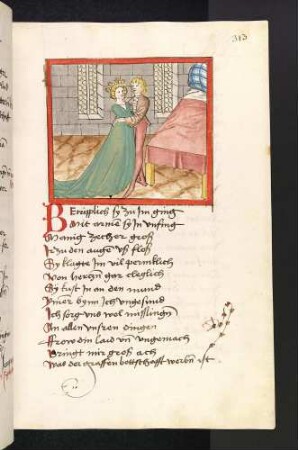 313
Begirlich sy zu im ging
Mit armen sy in vnfing
Manig zecher groß
Ir zu den augen vß floß
Sy klagte im vil permlich
Von herczen gar cleglich
Sy kust in an den mund
Ymer bynn ich vngesund
Ich sorg vns wol mißlingen
An allen vnsren dingen
Frow din laid vnd vngemach
Bringt mir groß ach
Was der graffen bottschafft werbn ist